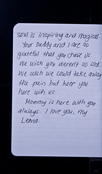 soul is inspiring and magical.
Your Daddy and I are so
grateful that you chose us.
We wish you weren't so sick.
We wish we could take away
the pain but keep you
here with us.
Mommy is here with you
always. I love you, my